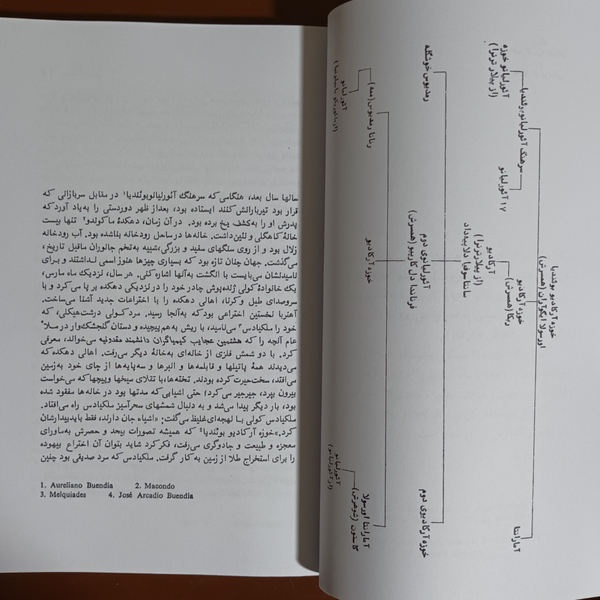 خوزه آرکادیو بوئندیا
اورسولا ایگوآران (همسرش)
سرهنگ آئورلیانو بوئندیا
خوزه آرکادیو
ربکا (همسرش)
آمارانتا
آئورلیانو خوزه
(از پیلار ترنرا)
۱۷ آئورلیانو
آرکادیو
(از پیلار ترنرا)
سانتا سوفیا دلاپیداد
رمدیوس خوشگله
آئورلیانوی دوم
فرناندا دل کارپیو (همسرش)
خوزه آرکادیوی دوم
رناتا رمدیوس (مه مه)
خوزه آرکادیو
آمارانتا اورسولا
گاستون (شوهرش)
آئورلیانو
آئورلیانو
سالها سال بعد، هنگامی که سرهنگ آئورلیانو بوئندیا۱ در مقابل سربازانی که
قرار بود تیربارانش کنند ایستاده بود، بعداز ظهر دوردستی را به یاد آورد که
پدرش او را به کشف یخ برده بود. در آن زمان، دهکدهٔ ماکوندو۲ تنها بیست
خانهٔ کاهگلی و نئین داشت. خانه‌ها در ساحل رودخانه بنا شده بود. آب رودخانه
زلال بود و از روی سنگهای سفید و بزرگی، شبیه به تخم جانوران ماقبل تاریخ،
می‌گذشت. جهان چنان تازه بود که بسیاری چیزها هنوز اسمی نداشتند و برای
نامیدنشان می‌بایست با انگشت به آنها اشاره کنی. هر سال، نزدیک ماه مارس،
یک خانوادهٔ کولی ژنده‌پوش چادر خود را در نزدیکی دهکده بر پا می‌کرد و با
سروصدای طبل و کرنا، اهالی دهکده را با اختراعات جدید آشنا می‌ساخت.
آهنربا نخستین اختراعی بود که به آنجا رسید. مرد کولی درشت‌هیکلی، که
خود را ملکیادس۳ می‌نامید، با ریش به هم پیچیده و دستان گنجشک‌وار در ملأ
عام آنچه را که هشتمین عجایب کیمیاگران دانشمند مقدونیه می‌خواند، معرفی
کرد. با دو شمش فلزی از خانه‌ای به خانهٔ دیگر می‌رفت. اهالی دهکده که
می‌دیدند همهٔ پاتیلها و قابلمه‌ها و انبرها و سه‌پایه‌ها از جای خود به زمین
می‌افتد، سخت حیرت کرده بودند. تخته‌ها، با تقلای میخها و پیچها که می‌خواست
بیرون بپرد، جیرجیر می‌کرد؛ حتی اشیایی که مدتها بود در خانه‌ها مفقود شده
بود، بار دیگر پیدا می‌شد و به دنبال شمشهای سحرآمیز ملکیادس راه می‌افتاد.
ملکیادس کولی با لهجه‌ای غلیظ می‌گفت: «اشیاء جان دارند، فقط باید بیدارشان
کرد.» خوزه آرکادیو بوئندیا۴ که همیشه تصورات بیحد و حصرش به ماورای
معجزه و طبیعت و جادوگری می‌رفت، فکر کرد شاید بتوان آن اختراع بیهوده
را برای استخراج طلا از زمین به کار گرفت. ملکیادس که مرد صدیقی بود چنین
1. Aureliano Buendia 2. Macondo
3. Melquiades 4. José Arcadio Buendia